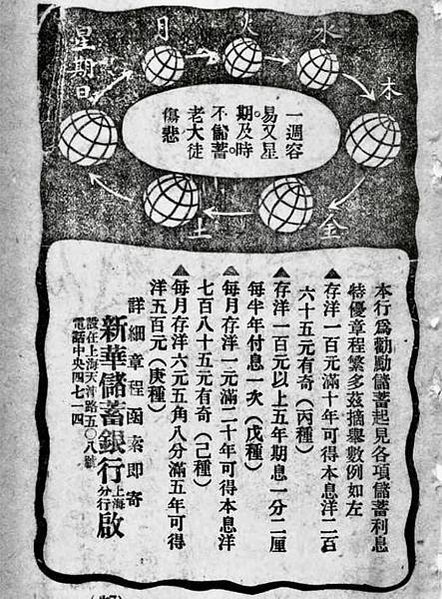 星期日
月
火
水
木
金
土
一週容
易又星
期。及時
不儲蓄。
老大徒
傷悲
本行爲勸勵儲蓄起見各項儲蓄利息
特優章程繁多茲摘舉數例如左
▲存洋一百元滿十年可得本息洋二百
六十五元有奇(丙種)
▲存洋一百元以上五年期息一分二厘
每半年付息一次(戊種)
▲每月存洋一元滿二十年可得本息洋
七百八十五元有奇(己種)
▲每月存洋六元五角八分滿五年可得
洋五百元(庚種)
詳細章程函索即寄
新華儲蓄銀行上海分行啟
設在上海天津路五〇八號
電話中央四七一四